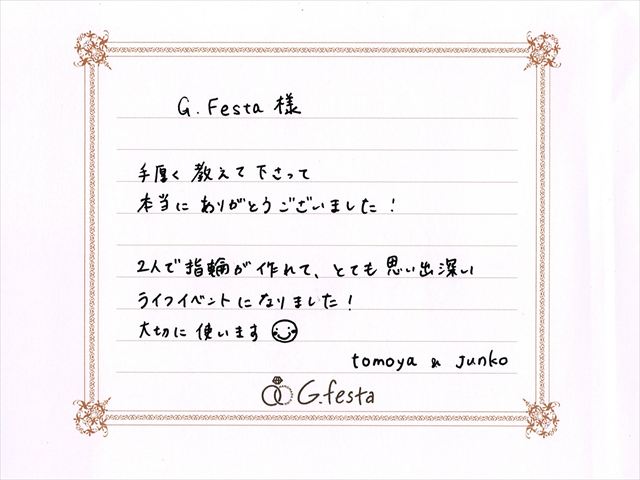 G.Festa 様
手厚く教えて下さって
本当にありがとうございました！
2人で指輪が作れて、とても思い出深い
ライフイベントになりました！
大切に使います
tomoya & Junko
G.festa